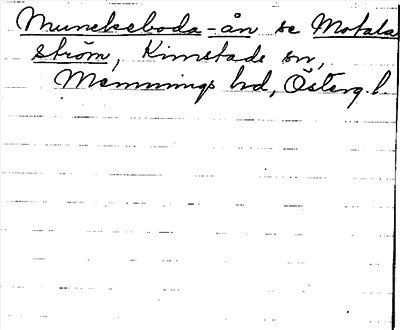 Munckeboda-ån se Motala
ström, Kimstads sn,
Memmings hd, Österg.l.